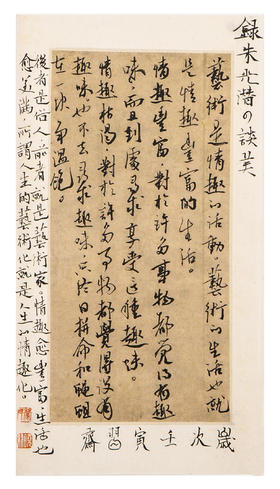 錄朱光潛の談美
藝術是情趣的活動。藝術的生活也就
是情趣豐富的生活。
情趣豐富對於許多事物都覺得有趣
味，而且到處尋求享受這種趣味。
情趣枯竭對於許多事物都覺得沒有
趣味，也不去尋求趣味，只終日拼命和蠅蛆
在一块爭温飽。
後者是俗人，前者就是藝術家。情趣愈豐富，生活也
愈美滿，所謂人生的藝術化就是人生的情趣化。
歲次壬寅習齋